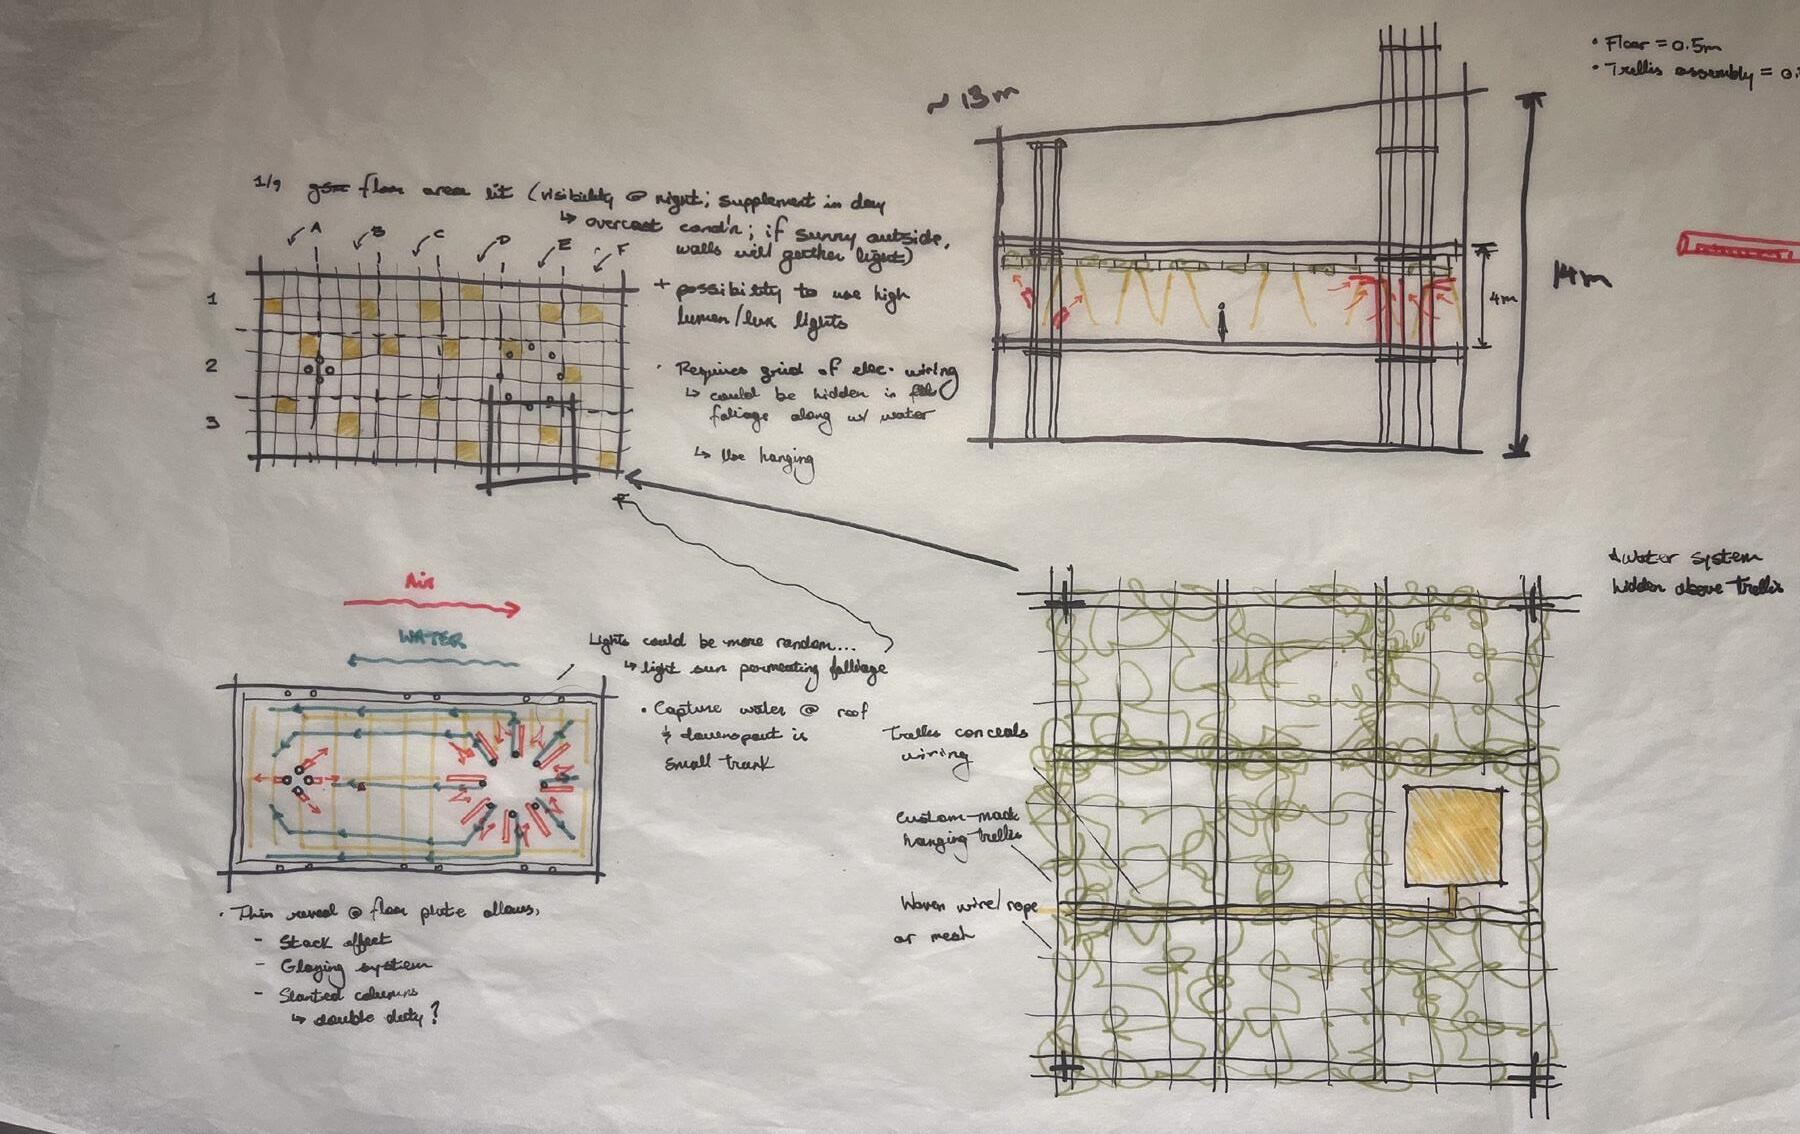 ~ 13m
• Floor = 0.5m
• Trellis assembly = 0.
4m
14m
1/9 floor area lit (visibility @ night; supplement in day
↳ overcast cond'n; if sunny outside,
walls will gather light)
+ possibility to use high
lumen/lux lights
• Requires grid of elec. wiring
↳ could be hidden in
foliage along w/ water
↳ Use hanging
A B C D E F
1
2
3
Air
WATER
Lights could be more random...
↳ light sun permeating folliage
• Capture water @ roof
& downspout is
small trunk
• Thin reveal @ floor plate allows,
- Stack effect
- Glazing system
- Slanted columns
↳ double duty?
Water system
hidden above Trellis
Trellis conceals
wiring
Custom-made
hanging trellis
Woven wire/rope
or mesh